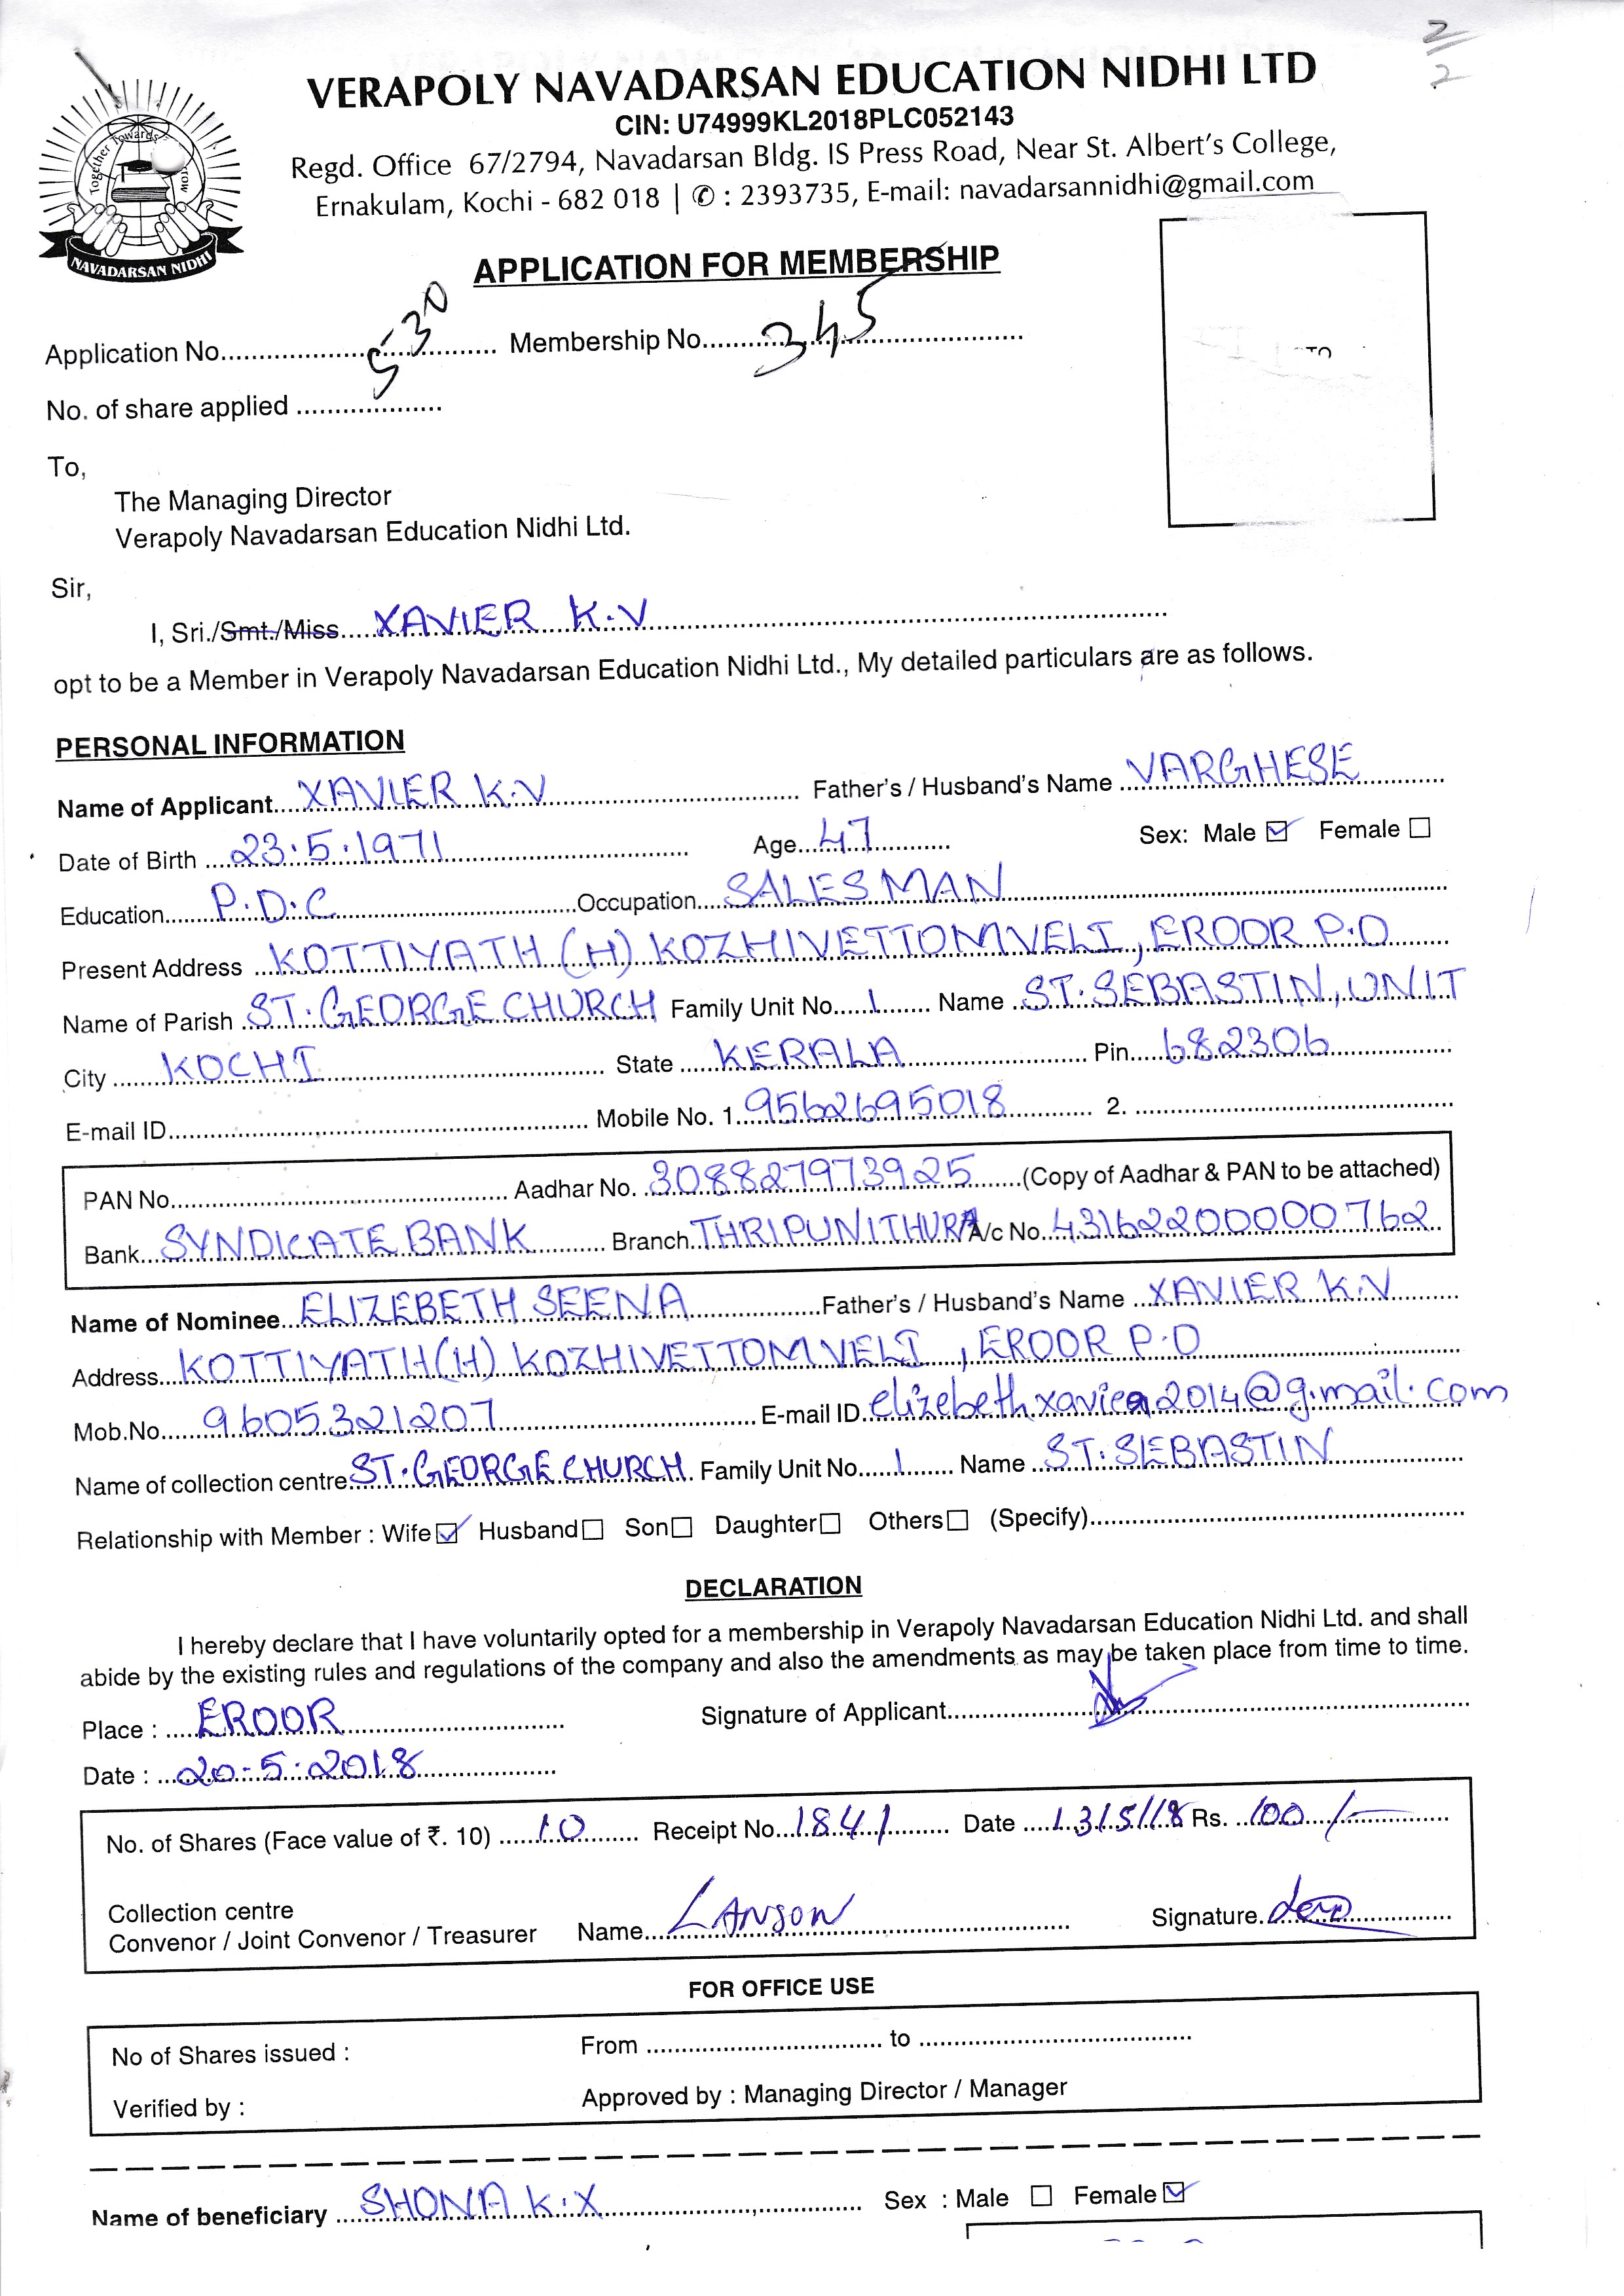 2/2
VERAPOLY NAVADARSAN EDUCATION NIDHI LTD
CIN: U74999KL2018PLC052143
Regd. Office 67/2794, Navadarsan Bldg. IS Press Road, Near St. Albert's College,
Ernakulam, Kochi - 682 018 | ✆ : 2393735, E-mail: navadarsannidhi@gmail.com
Together Towards
NAVADARSAN NIDHI
APPLICATION FOR MEMBERSHIP
Application No. 530 Membership No. 345
No. of share applied
To,
The Managing Director
Verapoly Navadarsan Education Nidhi Ltd.
Sir,
I, Sri./Smt./Miss XAVIER K.V
opt to be a Member in Verapoly Navadarsan Education Nidhi Ltd., My detailed particulars are as follows.
PERSONAL INFORMATION
Name of Applicant XAVIER K.V Father's / Husband's Name VARGHESE
Date of Birth 23.5.1971 Age 47 Sex: Male ☑ Female ☐
Education P.D.C Occupation SALES MAN
Present Address KOTTIYATH (H) KOZHIVETTOMVELI, EROOR P.O
Name of Parish ST. GEORGE CHURCH Family Unit No. 1 Name ST. SEBASTIN, UNIT
City KOCHI State KERALA Pin 682306
E-mail ID Mobile No. 1. 9562695018 2.
PAN No. Aadhar No. 308827973925 (Copy of Aadhar & PAN to be attached)
Bank SYNDICATE BANK Branch THRIPUNITHURA A/c No. 43162200000762
Name of Nominee ELIZEBETH SEENA Father's / Husband's Name XAVIER K.V
Address KOTTIYATH (H) KOZHIVETTOMVELI, EROOR P.O
Mob.No. 9605321207 E-mail ID elizebeth.xavier2014@g.mail.com
Name of collection centre ST. GEORGE CHURCH Family Unit No. 1 Name ST. SEBASTIN
Relationship with Member : Wife ☑ Husband ☐ Son ☐ Daughter ☐ Others ☐ (Specify)
DECLARATION
I hereby declare that I have voluntarily opted for a membership in Verapoly Navadarsan Education Nidhi Ltd. and shall
abide by the existing rules and regulations of the company and also the amendments as may be taken place from time to time.
Place : EROOR Signature of Applicant
Date : 20-5-2018
No. of Shares (Face value of ₹. 10) 10 Receipt No. 1841 Date 13/5/18 Rs. 100/-
Collection centre
Convenor / Joint Convenor / Treasurer Name LANSON Signature
FOR OFFICE USE
No of Shares issued : From to
Verified by : Approved by : Managing Director / Manager
Name of beneficiary SHONA K.X Sex : Male ☐ Female ☑